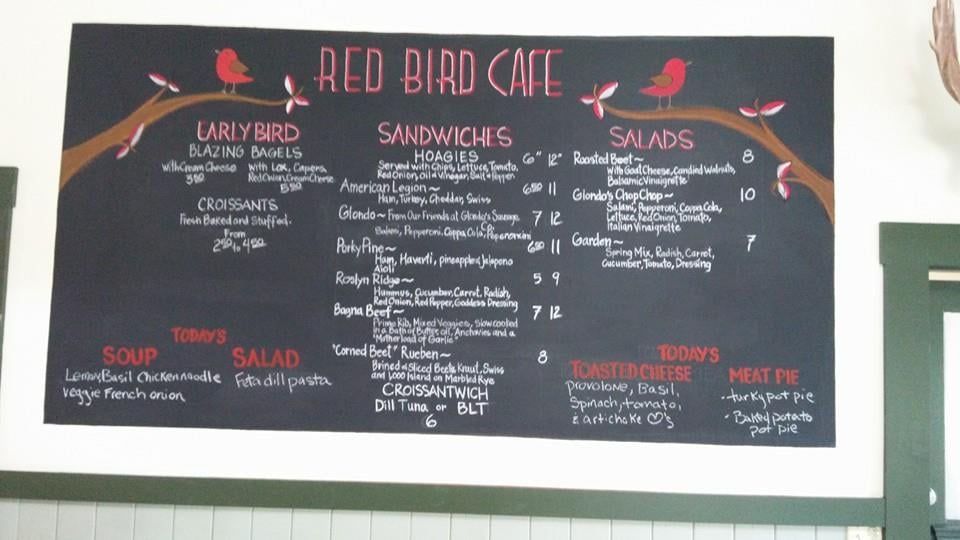 RED BIRD CAFE
EARLY BIRD
BLAZING BAGELS
with Cream Cheese
3.50
with Lox, Capers,
Red Onion, Cream Cheese
5.50
CROISSANTS
Fresh Baked and Stuffed.
From
2.50 to 4.50
TODAY'S
SOUP
Lemon, Basil Chicken noodle
veggie French onion
SALAD
Feta dill pasta
SANDWICHES
HOAGIES 6" 12"
Served with Chips, Lettuce, Tomato,
Red Onion, Oil & Vinegar, Salt & Pepper.
American Legion~ 6.50 11
Ham, Turkey, Cheddar, Swiss
Glondo~ From Our Friends at Glondo's Sausage Co. 7 12
Salami, Pepperoni, Coppa Cola, Peperoncini
Porky Pine~ 6.50 11
Ham, Havarti, pineapple & Jalapono
Aioli
Roslyn Ridge~ 5 9
Hummus, Cucumber, Carrot, Radish,
Red Onion, Red Pepper, Goddess Dressing
Bagna Beef~ 7 12
Prime Rib, Mixed Veggies, Slow cooked
in a Bath of Butter, oil, Anchovies and a
"Motherload of Garlic"
"Corned Beet" Rueben~ 8
Brined & Sliced Beets, Kraut, Swiss
and 1,000 Island on Marbled Rye
CROISSANTWICH
Dill Tuna or BLT
6
SALADS
Roasted Beet~ 8
With Goat Cheese, Candied Walnuts,
Balsamic Vinaigrette
Glondo's Chop Chop~ 10
Salami, Pepperoni, Coppa Cola,
Lettuce, Red Onion, Tomato,
Italian Vinaigrette
Garden~ 7
Spring Mix, Radish, Carrot,
Cucumber, Tomato, Dressing
TODAY'S
TOASTED CHEESE
provolone, Basil,
Spinach, tomato,
& artichoke ♡'s
MEAT PIE
-turky pot pie
-Baked potato
pot pie